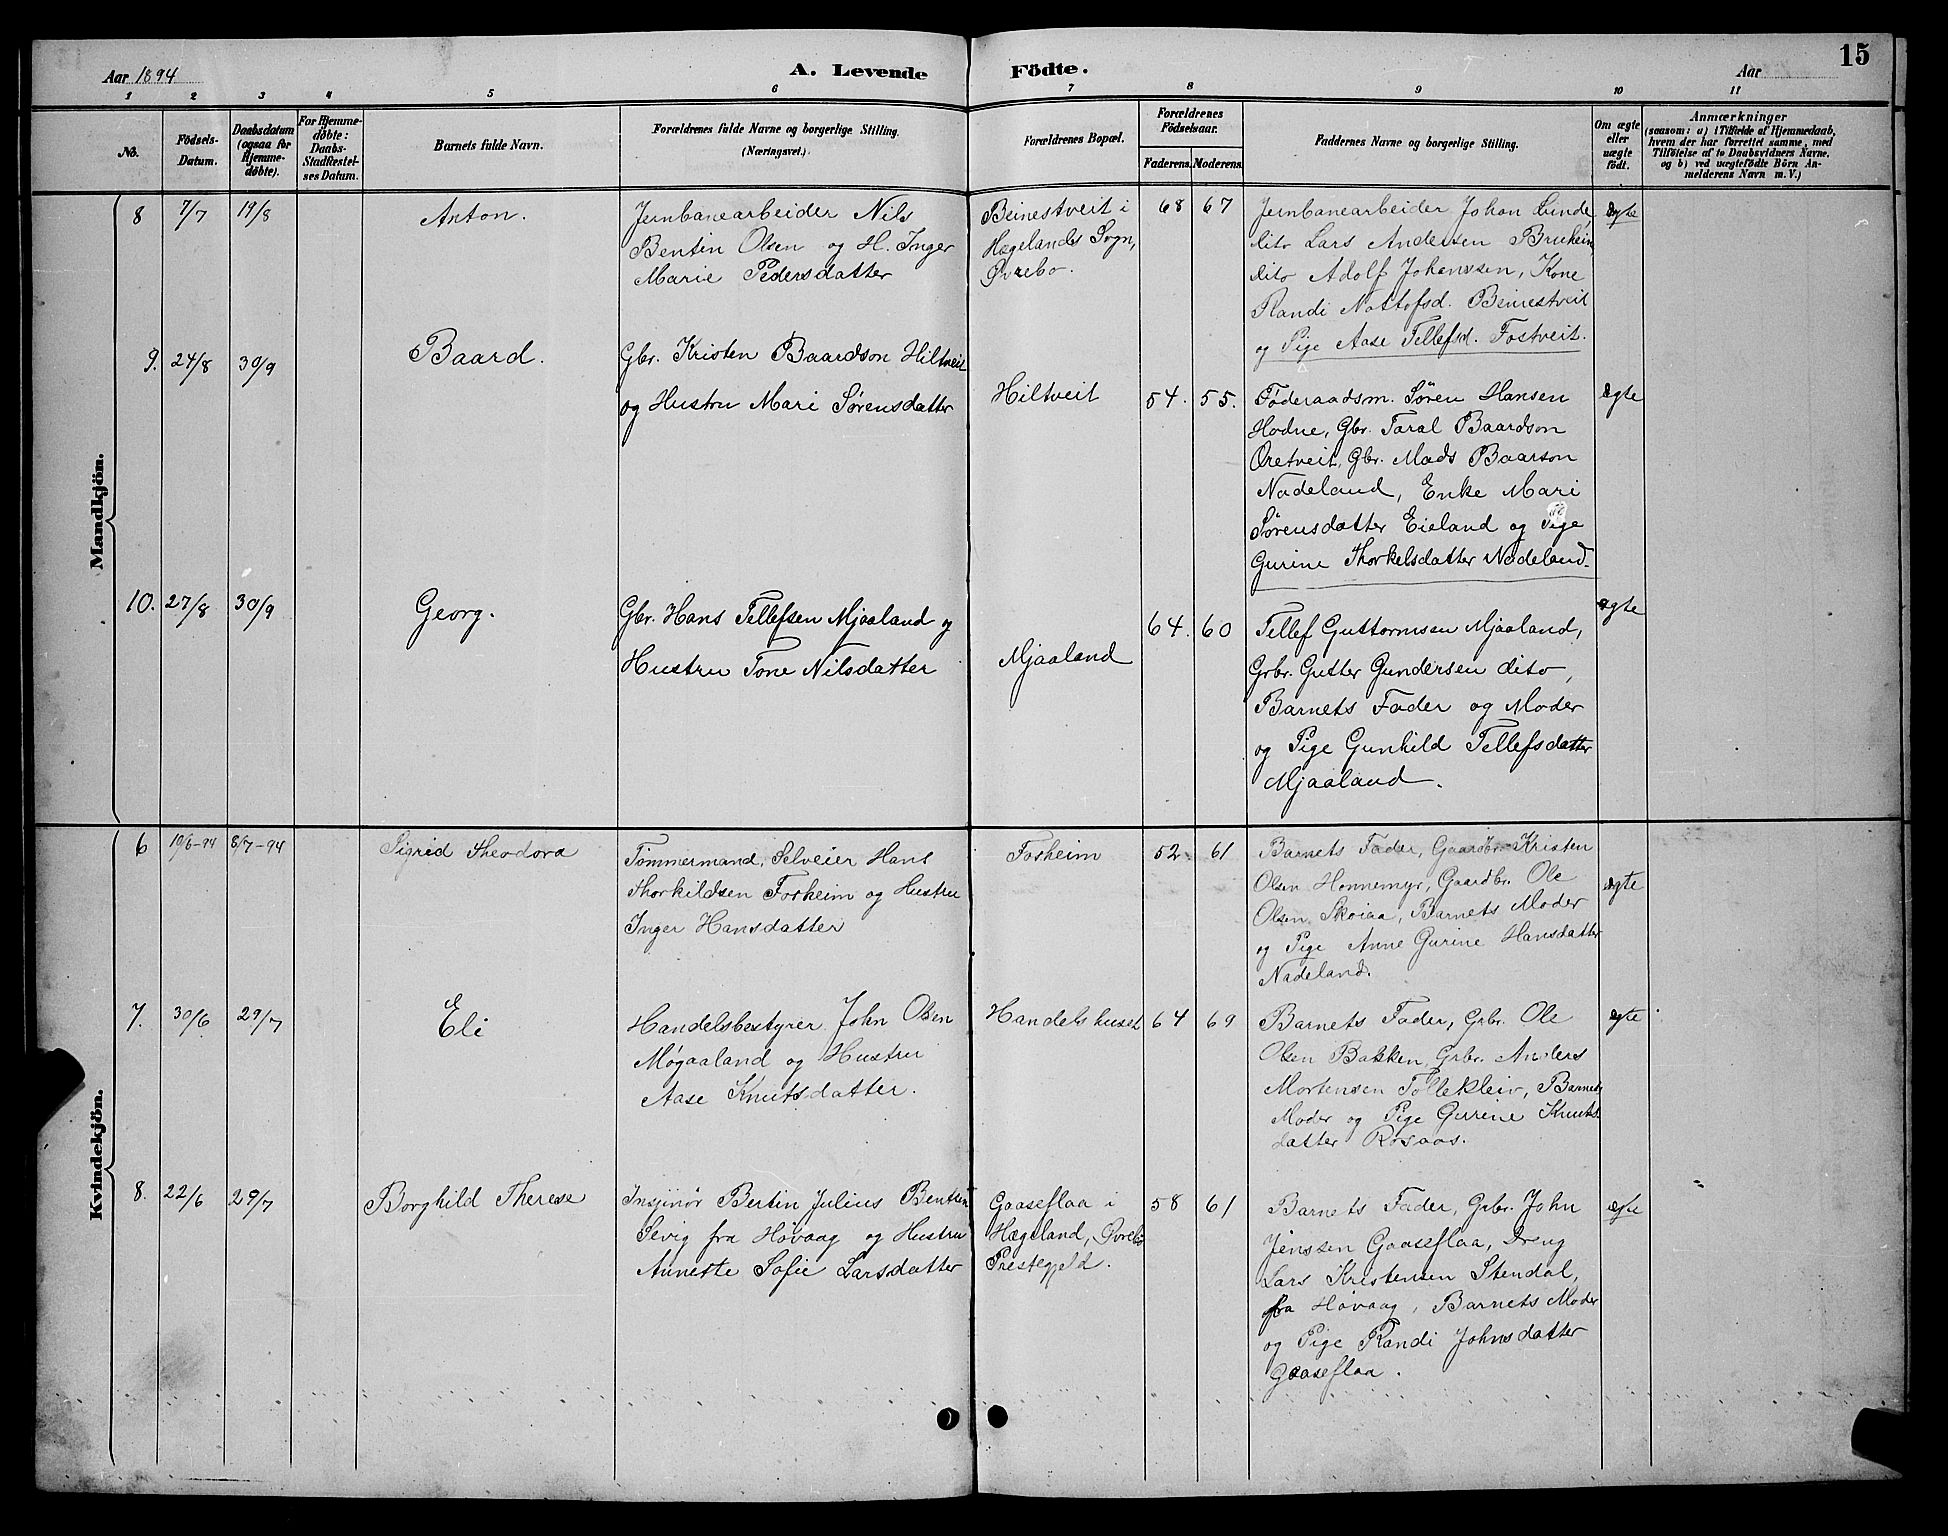 15
Aar 1894
A. Levende Födte.
Aar
1 2 3 4 5 6 7 8 9 10 11
No.
Födsels-
Datum.
Daabsdatum
(ogsaa for
Hjemme-
døbte).
For Hjemme-
døbte:
Daabs-
Stadfæstel-
ses Datum.
Barnets fulde Navn.
Forældrenes fulde Navne og borgerlige Stilling.
(Næringsvei.)
Forældrenes Bopæl.
Forældrenes
Födselsaar.
Faderens. Moderens.
Faddernes Navne og borgerlige Stilling.
Om ægte
eller
uægte
födt.
Anmærkninger
(saasom: a) i Tilfælde af Hjemmedaab,
hvem der har forrettet samme, med
Tilföielse af to Daabsvidners Navne,
og b) ved uægtefödte Börn An-
melderens Navn m. V.)
Mandkjön.
8 7/7 19/8
Anton.
Jernbanearbeider Nils
Bentin Olsen og H. Inger
Marie Pedersdatter
Beinestveit i
Hægelands Sogn,
Øvrebø.
68 67
Jernbanearbeider Johan Linde,
dito Lars Andersen Bruheim,
dito Adolf Johanssen, Kone
Randi Nottofsd. Beinestveit
og Pige Aase Tellefsd. Fostveit.
ægte
9. 24/8 30/9
Baard.
Gbr. Kristen Baardson Hiltveit
og Hustru Mari Sørensdatter
Hiltveit
54. 55.
Føderaadsm. Søren Hansen
Hodne, Gbr. Taral Baardson
Øretveit, Gbr. Mads Baarson
Nadeland, Enke Mari
Sørensdatter Eieland og Pige
Gurine Thorkelsdatter Nadeland.
ægte
10. 27/8 30/9
Georg.
Gbr. Hans Tellefsen Mjaaland og
Hustru Tone Nilsdatter
Mjaaland
64. 60
Tellef Guttormsen Mjaaland,
Grbr. Gutter Gundersen dito,
Barnets Fader og Moder
og Pige Gunhild Tellefsdatter
Mjaaland.
ægte
Kvindekjön.
6 19/6-94 8/7-94
Sigrid Theodora
Tømmermand, Selveier Hans
Thorkildsen Forheim og Hustru
Inger Hansdatter
Forheim
52. 61
Barnets Fader, Gaardbr. Kristen
Olsen Honnemyr, Gaardbr. Ole
Olsen Skoiaa, Barnets Moder
og Pige Anne Gurine Hansdatter
Nadeland.
ægte
7. 30/6 29/7
Eli
Handelsbestyrer John Olsen
Møgaaland og Hustru
Aase Knutsdatter.
Handelshuset
64 69
Barnets Fader, Grbr. Ole
Olsen Bakken, Grbr. Anders
Mortensen Tollekleiv, Barnets
Moder og Pige Gurine Knuts-
datter Rosaas.
ægte
8. 22/6 29/7
Borghild Therese
Insjinør Bertin Julius Bentsen
Sevig fra Høvaag og Hustru
Annette Sofie Larsdatter
Gaaseflaa i
Hægeland, Øvrebø
Prestegjeld.
58 61
Barnets Fader, Grbr. John
Jenssen Gaaseflaa, Dreng
Lars Kristensen Stendal,
fra Høvaag, Barnets Moder
og Pige Randi Johnsdatter
Gaaseflaa.
ægte